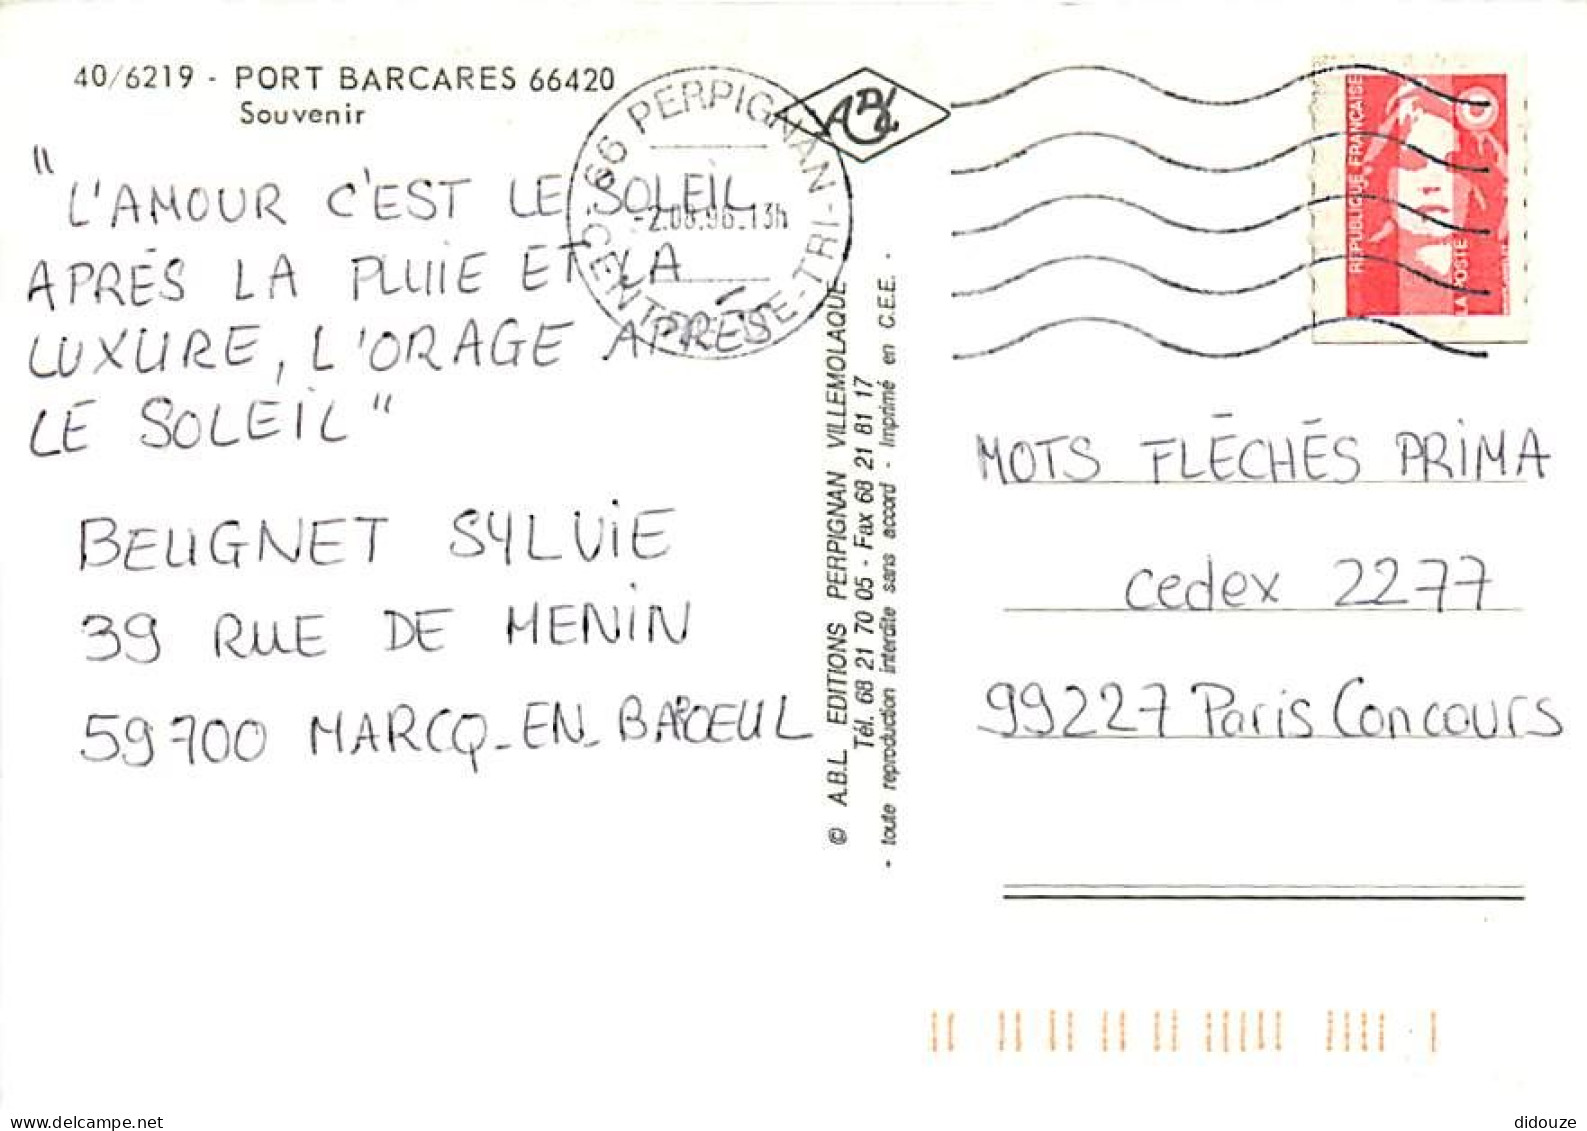 40/6219 - PORT BARCARES 66420
Souvenir
"L'AMOUR C'EST LE SOLEIL
APRÈS LA PLUIE ET LA
LUXURE, L'ORAGE APRÈS
LE SOLEIL"
BEUGNET SYLVIE
39 RUE DE MENIN
59700 MARCQ-EN-BAROEUL
66 PERPIGNAN-TRI-
ABL
© A.B.L EDITIONS PERPIGNAN VILLEMOLAQUE
Tél. 68 21 70 05 - Fax 68 21 81 17
- toute reproduction interdite sans accord - Imprimé en C.E.E. -
REPUBLIQUE FRANÇAISE
LA POSTE
MOTS FLÉCHÉS PRIMA
cedex 2277
99227 Paris Concours
didouze